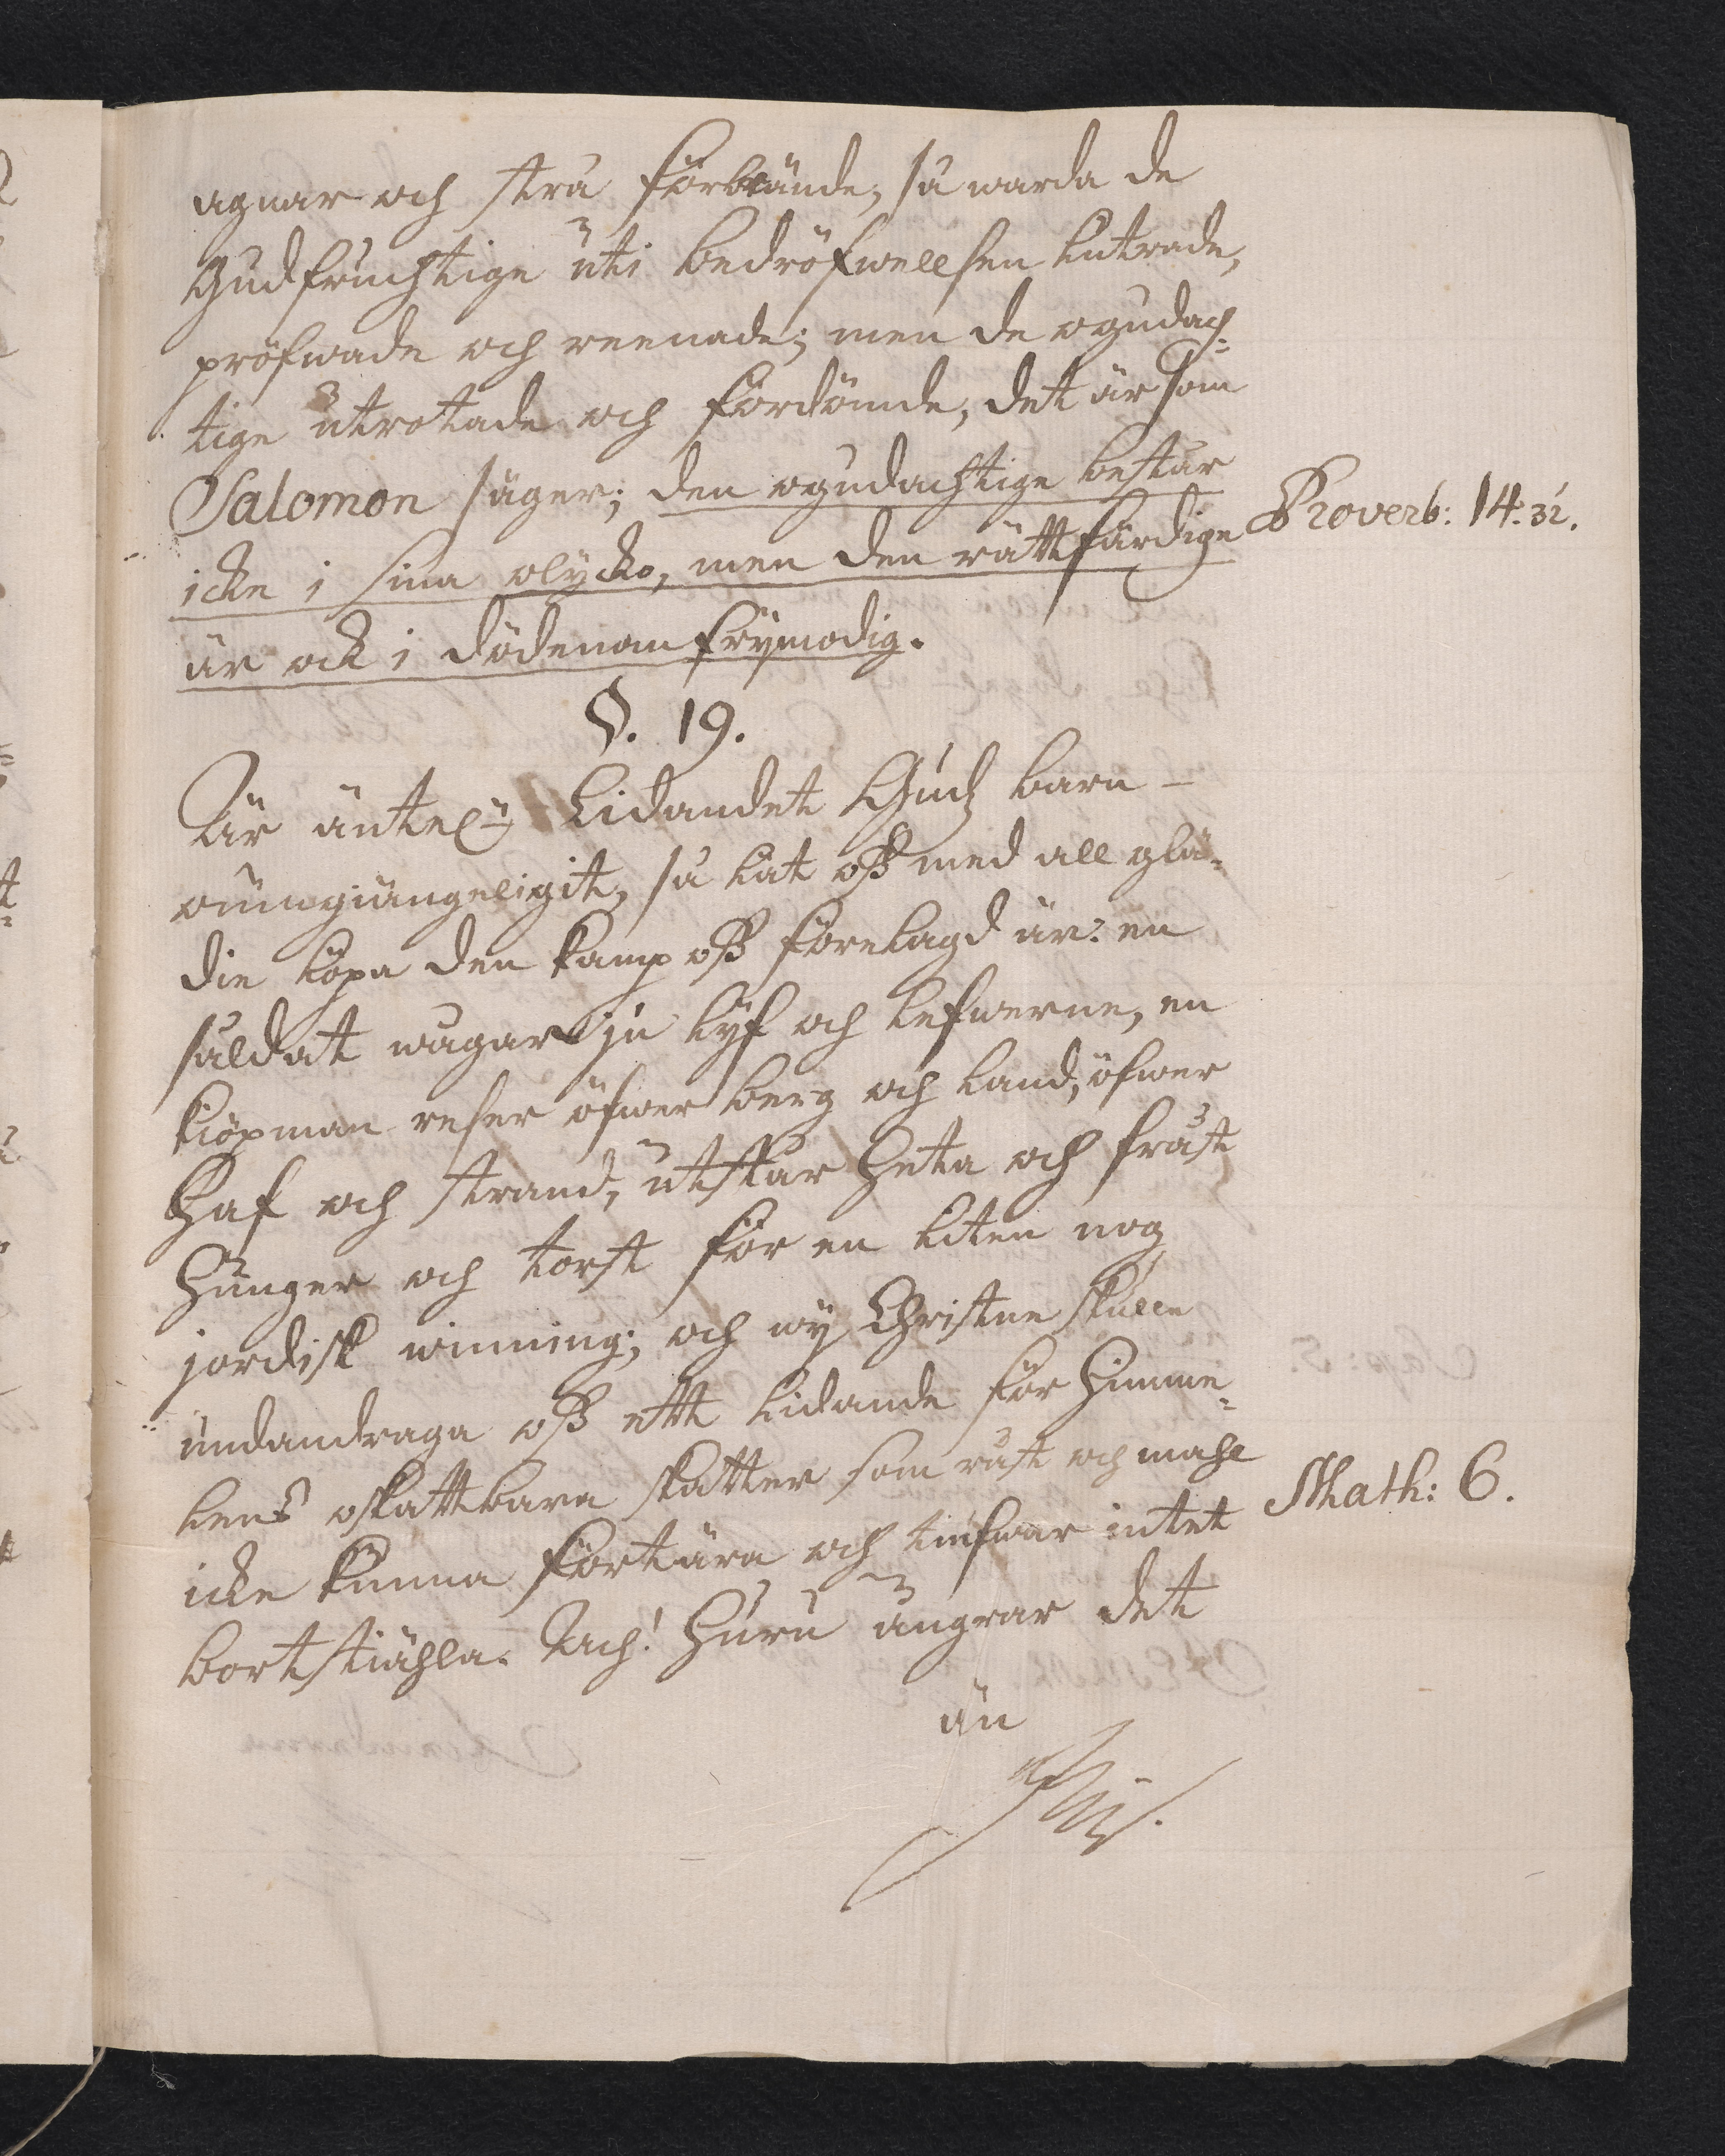 agnar och strå förbrände, så warda de
Gudfruchtige uti bedröfwellsen lutrade,
pröfwade och reenade; men de ogudach=
tige utrotade och fördömde, det är som
Salomon säger; den ogudachtige består
icke i sina olycko, men den rättfärdige
är ock i dödenom frymodig.
Proverb: 14. 32.
§. 19.
Är äntel: Lidandet Gudz barn
oumgiängeligit, så låt oß med all glä=
die löpa den kamp oß förelagd är: en
såldat wågar ju lÿf och lefwerne, en
kiöpman reser öfwer berg och land, öfwer
Haf och strand, utstår heta och fråst
Hunger och torst för en liten nog
jordisk winning; och wÿ Christne skulle
undandraga oß ett lidande för Himme=
lens oskattbara skatter som råst och mahl
icke kunna förtära, och tiufwar intet
bortstiähla. Ach! Huru ångrar det
Math: 6.
än